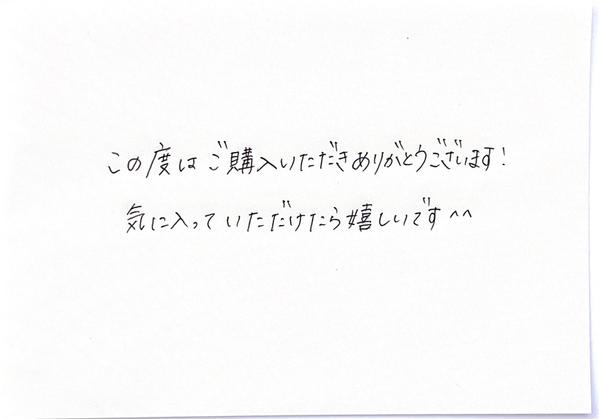 この度はご購入いただきありがとうございます!
気に入っていただけたら嬉しいです^^